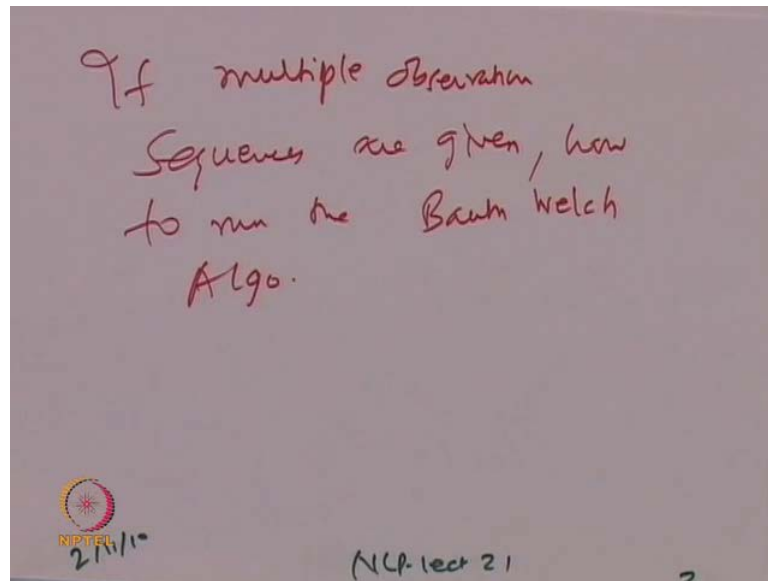 If multiple observation
Sequences are given, how
to run the Baum Welch
Algo.
NPTEL
2/11/10
NLP-lect 21